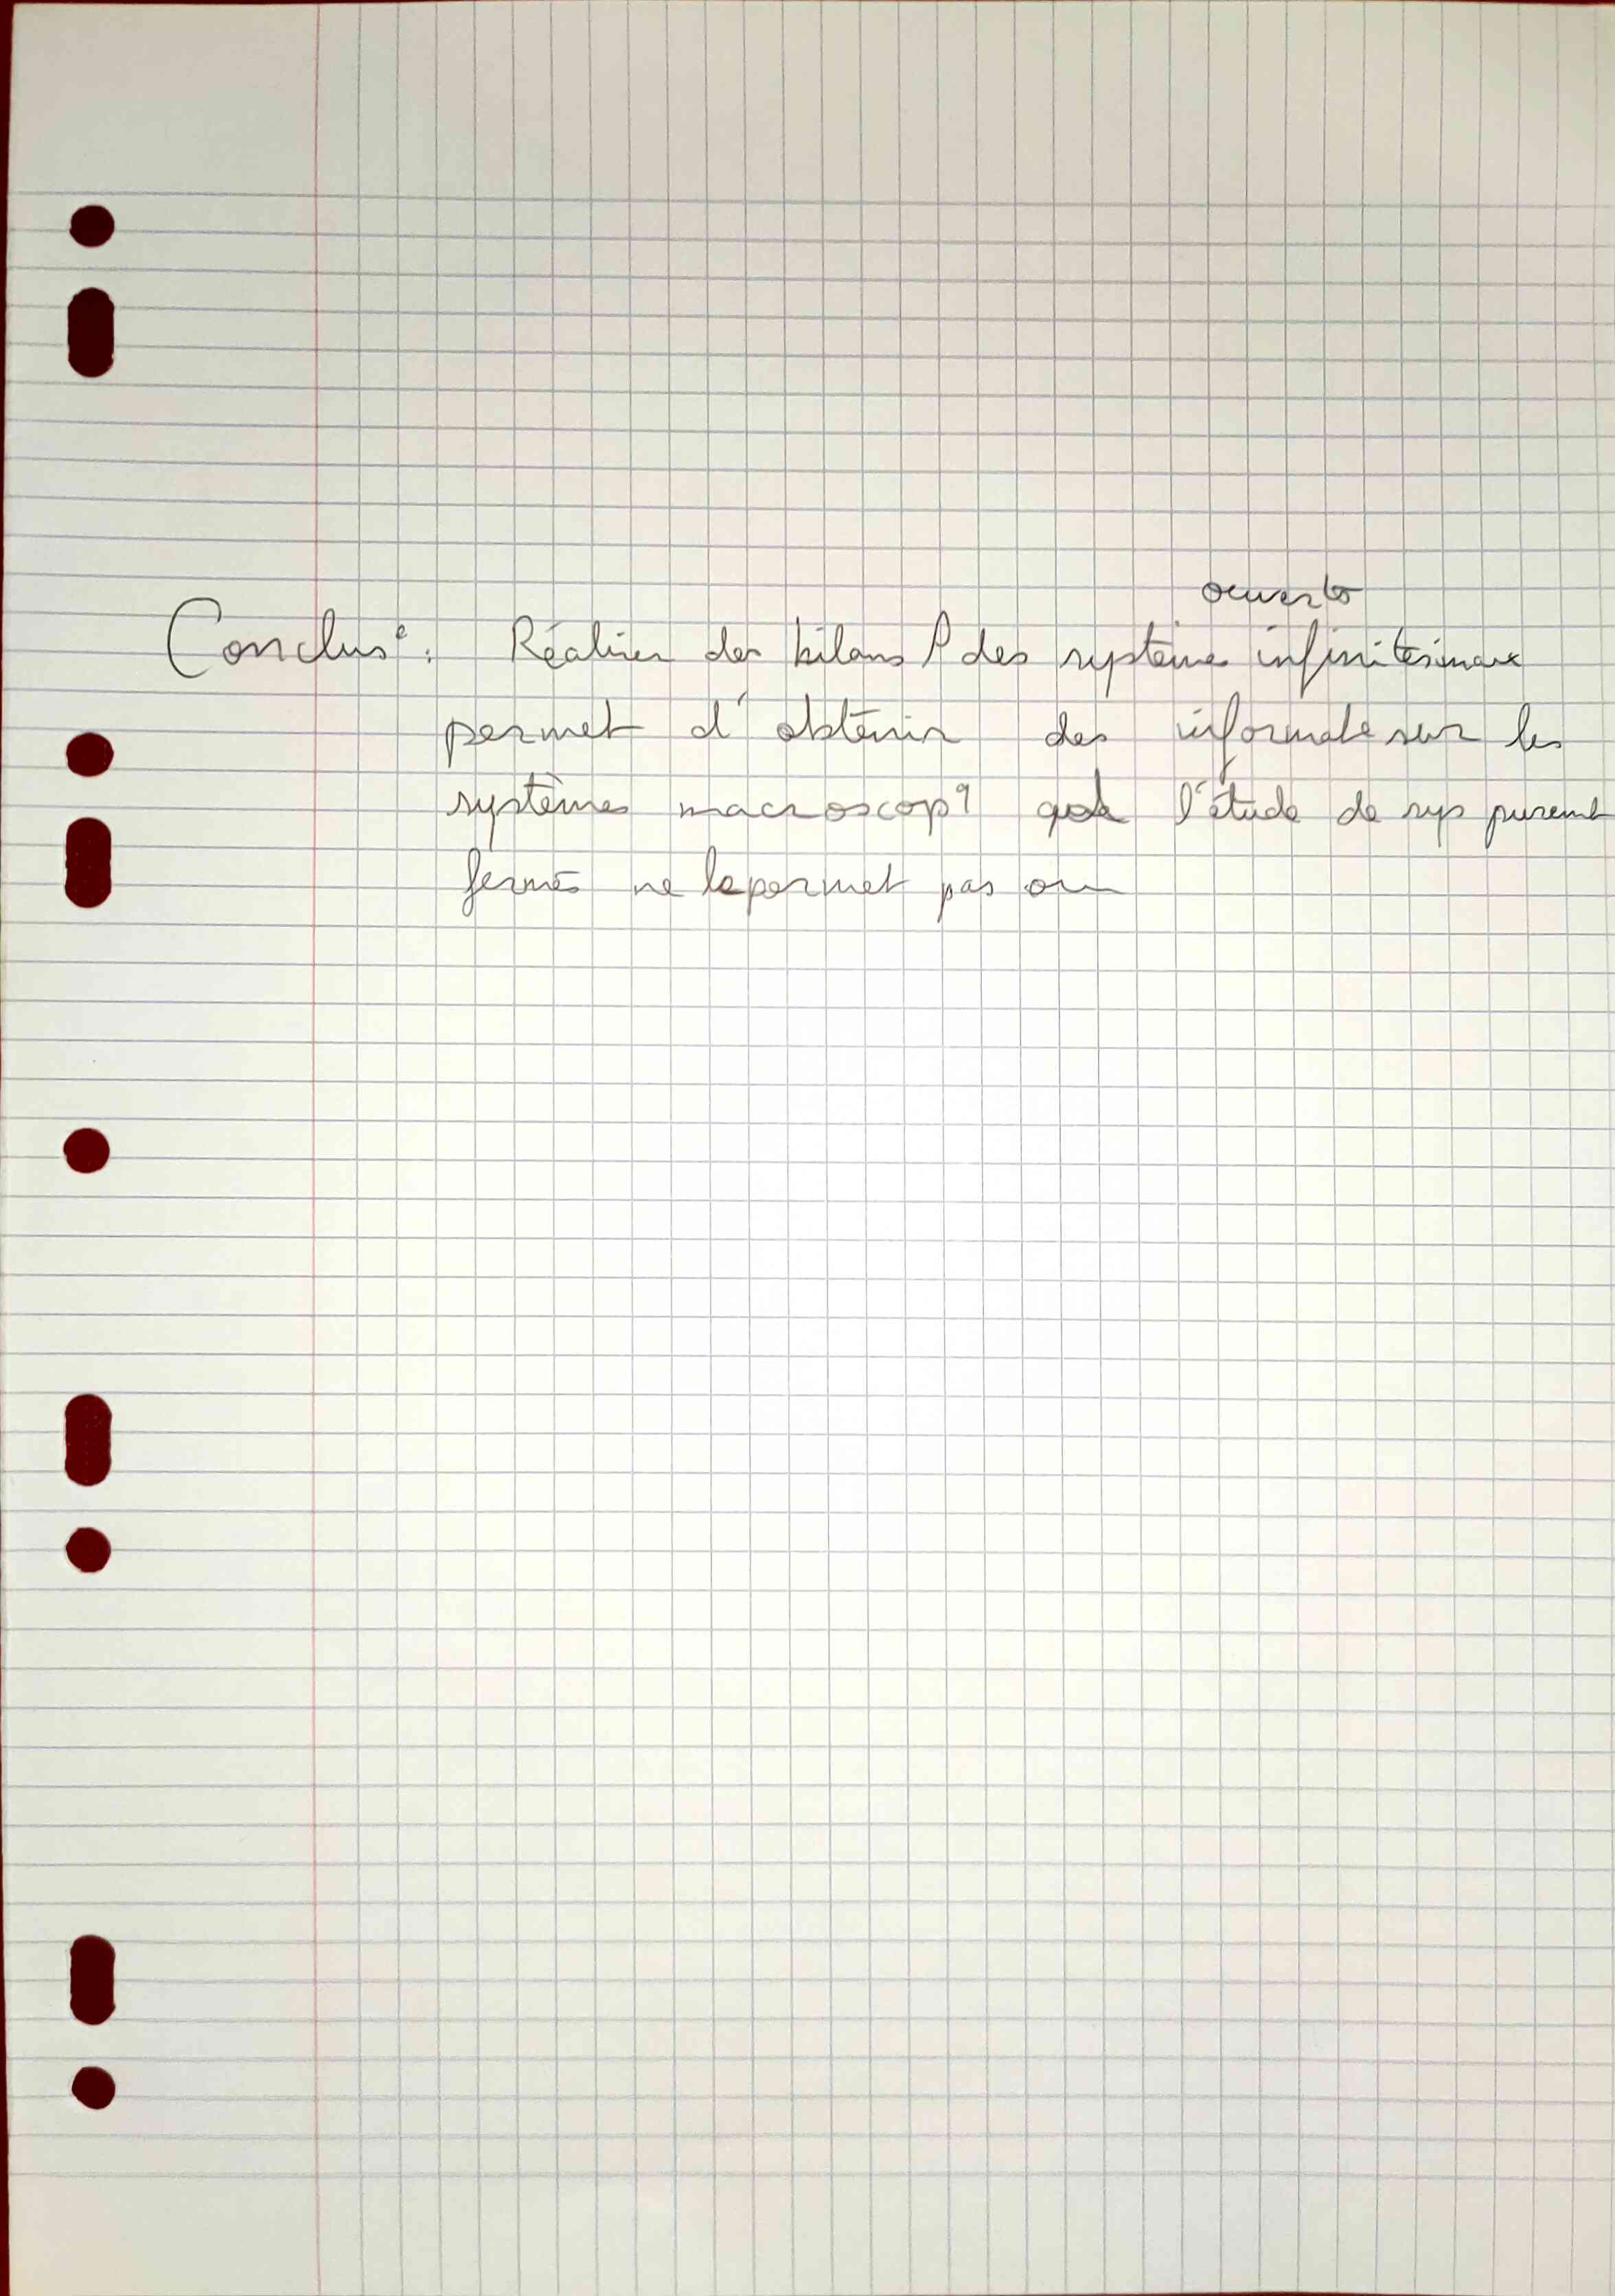 ouverts
Conclus°: Réaliser des bilans des système infinitésimaux
permet d'obtenir des informat° sur les
systèmes macroscopq l'étude de sys purement
fermés ne le permet pas ou